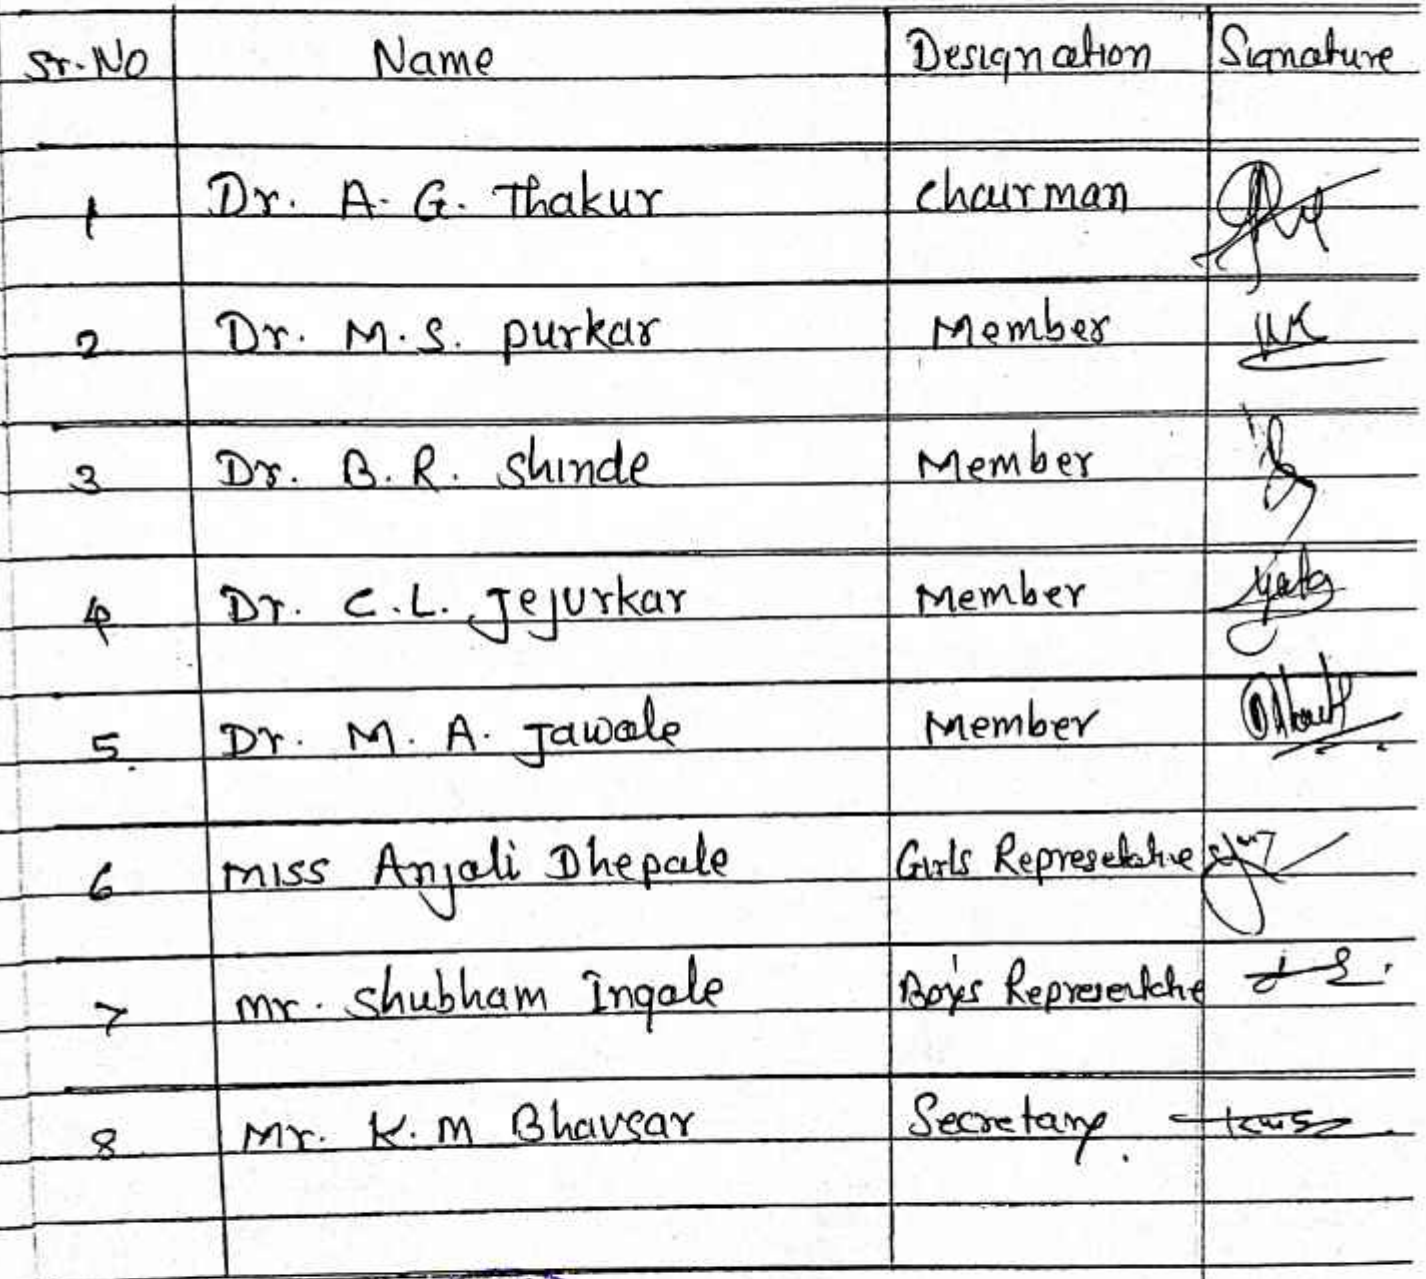 Sr.No Name Designation Signature
1 Dr. A. G. Thakur Chairman
2 Dr. M.S. Purkar Member
3 Dr. B.R. Shinde Member
4 Dr. C.L. Jejurkar Member
5. Dr. M.A. Jawale Member
6 Miss Anjali Dhepale Girls
7 Mr. Shubham Ingale Boy's
8 Mr. K.M Bhavsar Secretary.